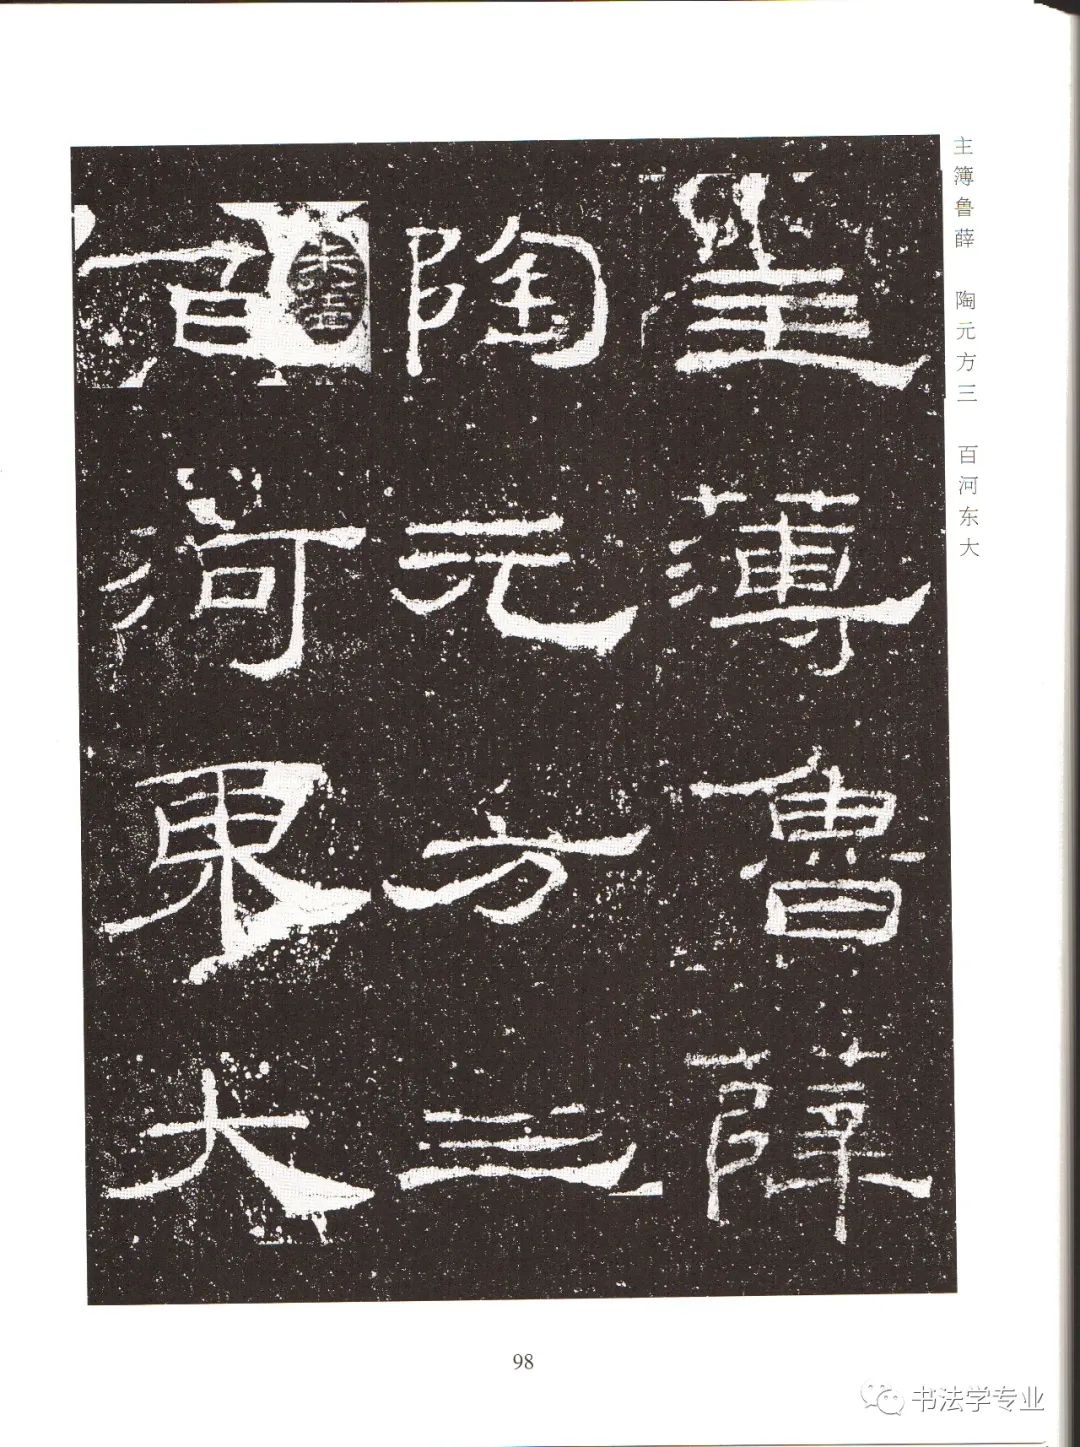 主薄魯薛
陶元方三
百河東大
主簿鲁薛 陶元方三 百河东大
98
书法学专业